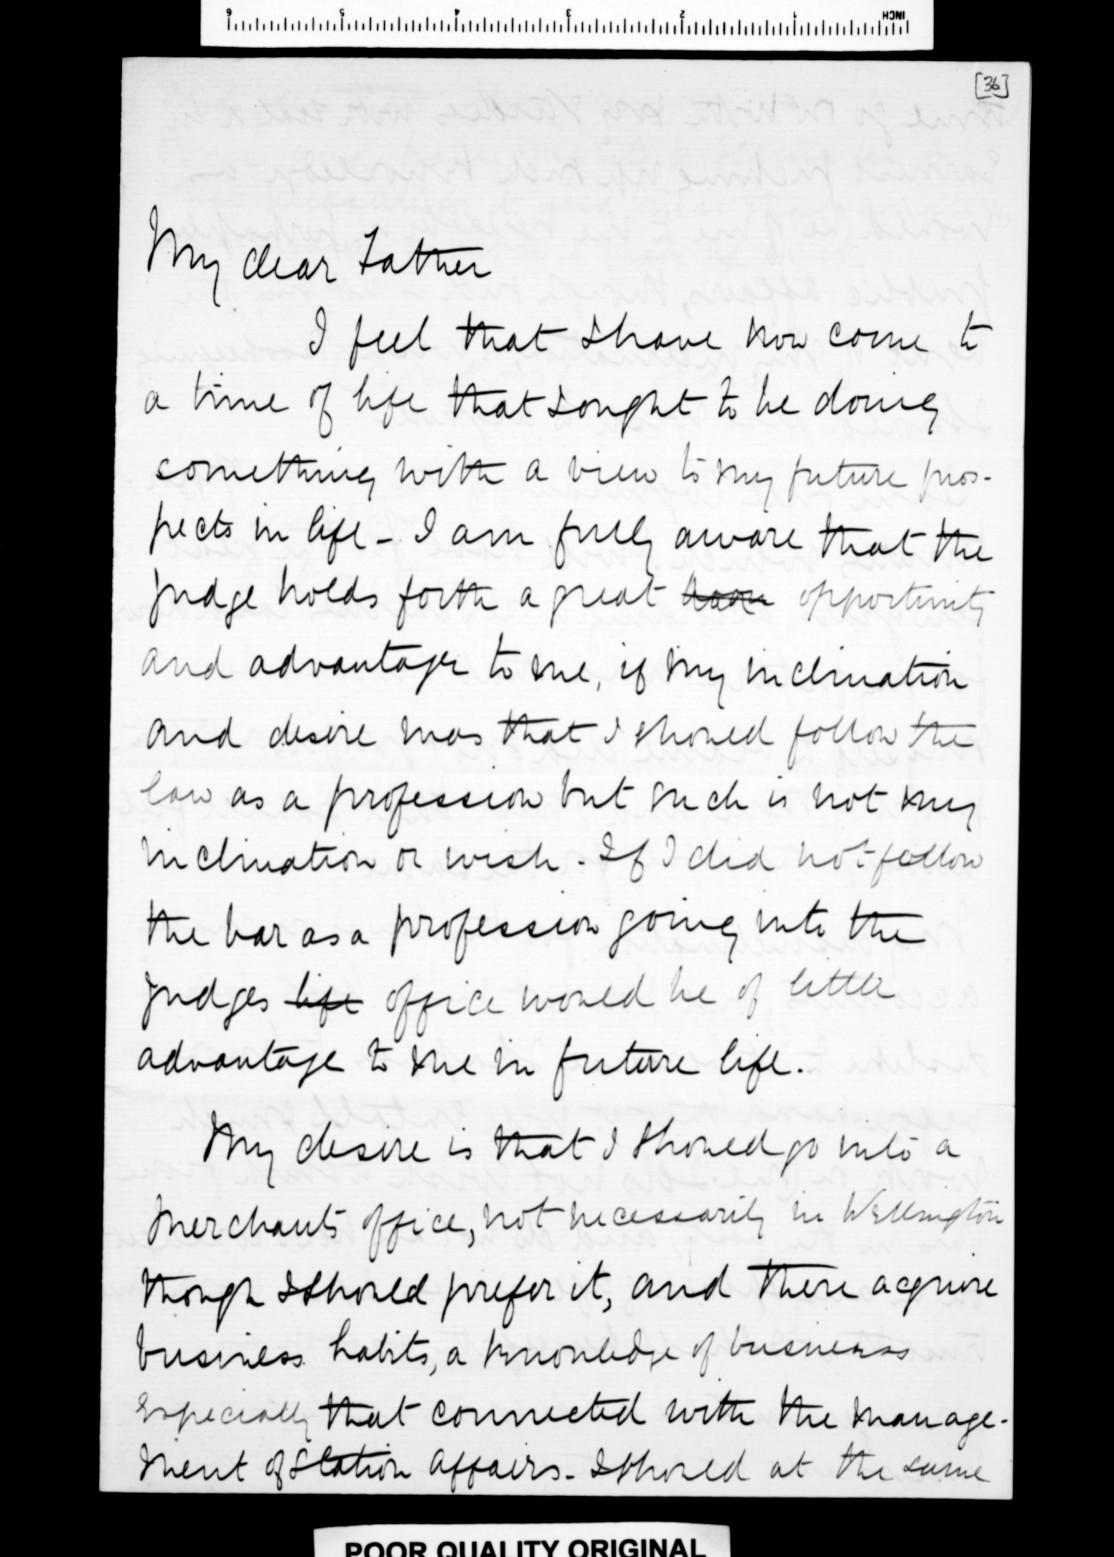 INCH
1 2 3 4 5 6
[36]
My dear Father
I feel that I have now come to
a time of life that I ought to be doing
something with a view to my future pros-
pects in life - I am fully aware that the
Judge holds forth a great opportunity
and advantage to me, if my inclination
and desire was that I should follow the
law as a profession but such is not my
inclination or wish - If I did not follow
the bar as a profession going into the
Judges life office would be of little
advantage to me in future life.
My desire is that I should go into a
Merchants office, not necessarily in Wellington
though I should prefer it, and there acquire
business habits, a knowledge of business
especially that connected with the manage-
ment of Station affairs - I should at the same
POOR QUALITY ORIGINAL